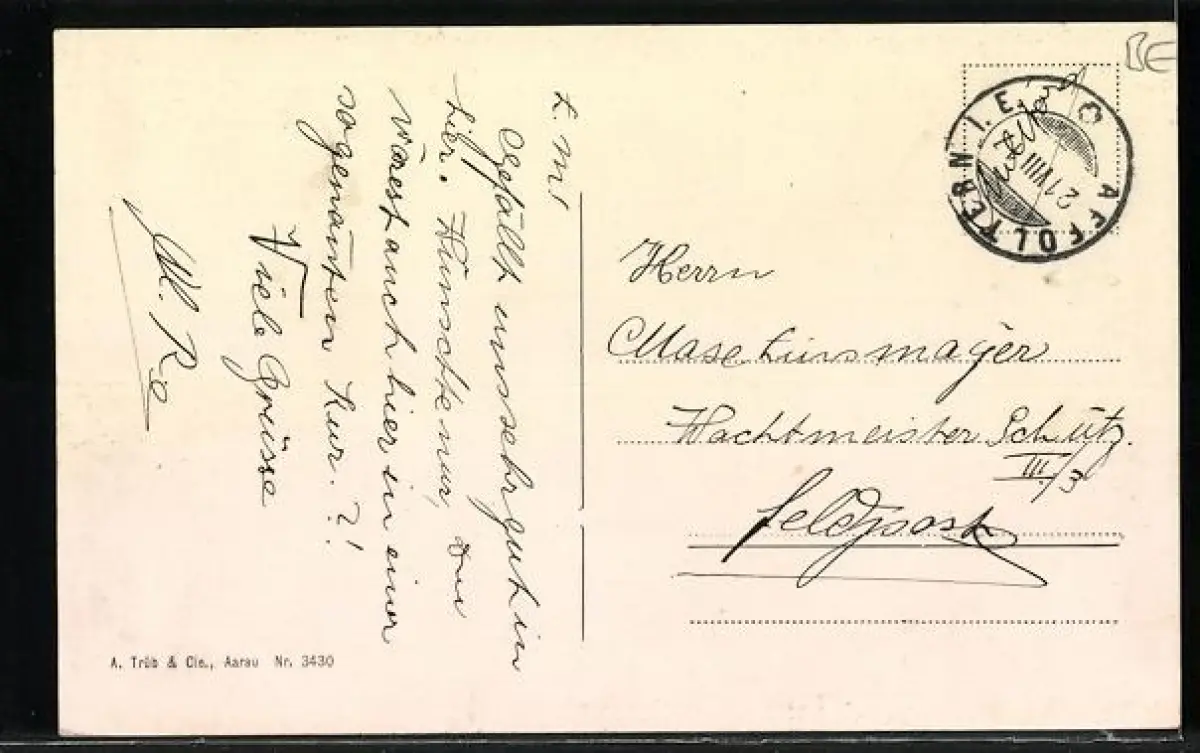 L. M!
Gefällt uns sehr gut in
hier. Wünschte nur, Du
wärest auch hier in einer
sogenannten Kur. ?!
Viele Grüsse
BE
AFFOLTERN I. E.
21 VIII
Herrn
Wachtmeister Schütz.
III/3
Feldpost
A. Trüb & Cie., Aarau Nr. 3430